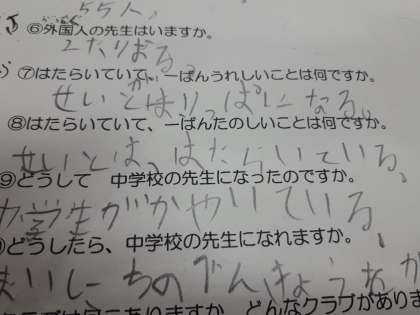 55人、
⑥外国人の先生はいますか。
2たりばる。
⑦はたらいていて、一ばんうれしいことは何ですか。
せいとがはりっぱになる、
⑧はたらいていて、一ばんたのしいことは何ですか。
せいとは、はたらいている、
⑨どうして 中学校の先生になったのですか。
中学生がかやいている、
どうしたら、中学校の先生になれますか。
まいしーちのべんきょうをが
クラブは何こありますか。どんなクラブがありま